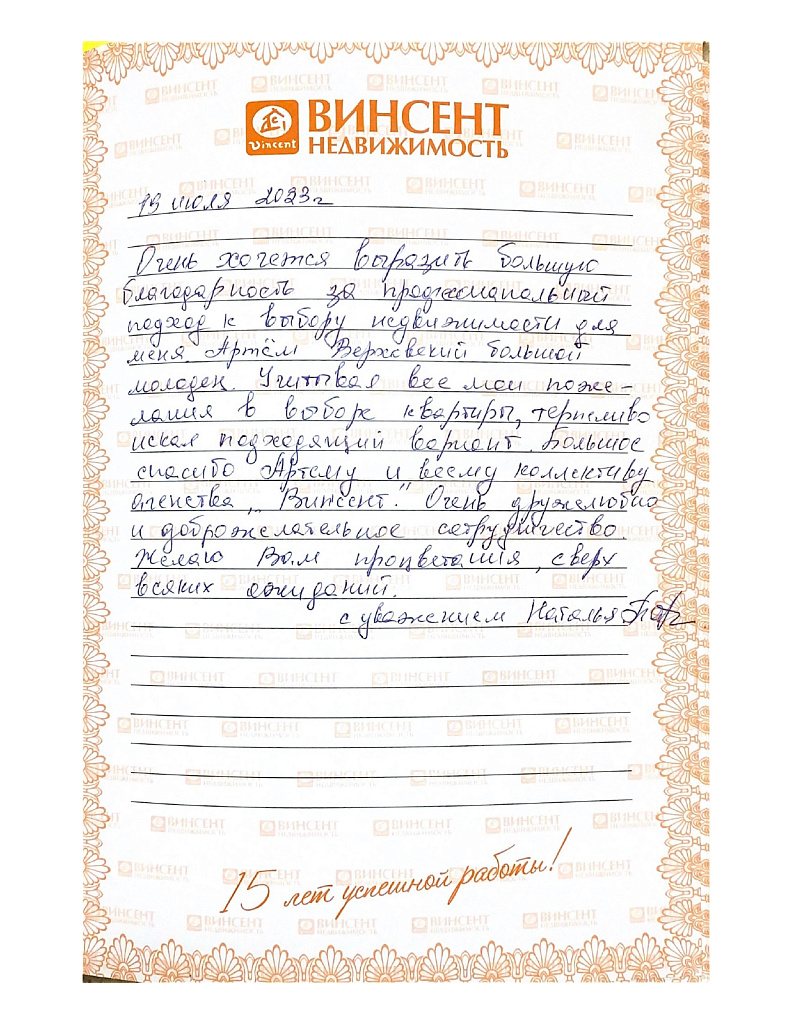 ВИНСЕНТ
НЕДВИЖИМОСТЬ
Vincent
19 июля 2023г
Очень хочется выразить большую
благодарность за профессиональный
подход к выбору недвижимости для
меня. Артём Верховский большой
молодец. Учитывая все мои поже-
лания в выборе квартиры, терпеливо
искал подходящий вариант. Большое
спасибо Артему и всему коллективу
агенства „Винсент." Очень дружелюбно
и доброжелательное сотрудничество.
Желаю Вам процветания, сверх
всяких ожиданий.
с уважением Наталья
15 лет успешной работы!